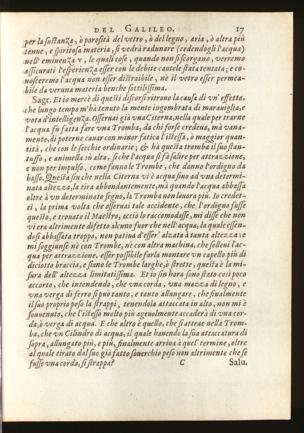 DEL GALILEO. 17
per la sostanza, ò porosità del vetro, ò del legno, aria, ò altra più
tenue, e spiritosa materia, si vedrà radunare (cedendogli l'acqua)
nell'eminenza V, le quali cose, quando non si scorgano, verremo
assicurati l'esperienza esser con le debite cautele stata tentata; e co-
nosceremo l'acqua non esser distraibile, nè il vetro esser permea-
bile da veruna materia benche sottilissima.
Sagr. Et io mercè di questi discorsi ritrovo la causa di vn' effetto,
che lungo tempo m'hà tenuto la mente ingombrata di maraviglia, e
vota d'intelligenza. Osservai già vna Citerna, nella quale per trarne
l'acqua fù fatta fare vna Tromba, da chi forse credeua, mà vana-
mente, di poterne cauar con minor fatica l'istessa, ò maggior quan-
tità, che con le secchie ordinarie; & hà questa tromba il suo stan-
tuffo, e animella sù alta, sì che l'acqua si fà salire per attrazzione,
e non per impulso, come fanno le Trombe, che danno l'ordigno da
basso. Questa sin che nella Citerna vi è acqua sino ad vna determi-
nata altezza, la tira abbondantemente, mà quando l'acqua abbassa
oltre à vn determinato segno, la Tromba non lauora più. Io credet-
ti, la prima volta che osseruai tale accidente, che l'ordigno fusse
guasto, e trouato il Maestro, acciò lo raccomodasse, mi disse che non
vi era altrimente difetto alcuno fuor che nell'acqua, la quale essen-
dosi abbassata troppo, non patiua d'esser' alzata à tanta altezza; e
mi soggiunse nè con Trombe, nè con altra machina, che solleui l'ac-
qua per attrazzione, esser possibile farla montare vn capello più di
diciotto braccia, e siano le Trombe larghe, ò strette, questa è la mi-
sura dell' altezza limitatissima. Et io sin hora sono stato così poco
accorto, che intendendo, che vna corda, vna mazza di legno, e
vna verga di ferro si può tanto, e tanto allungare, che finalmente
il suo proprio peso la strappi, tenendola attaccata in alto, non mi è
souuenuto, che l'istesso molto più ageuolmente accaderà di vna cor-
da, ò verga di acqua. E che altro è quello, che si attrae nella Trom-
ba, che vn Cilindro di acqua, il quale hauendo la sua attaccatura di
sopra, allungato più, e più, finalmente arriua à quel termine, oltre
al quale tirato dal suo già fatto souerchio peso non altrimente che se
fusse vna corda, si strappa?
C Salu.